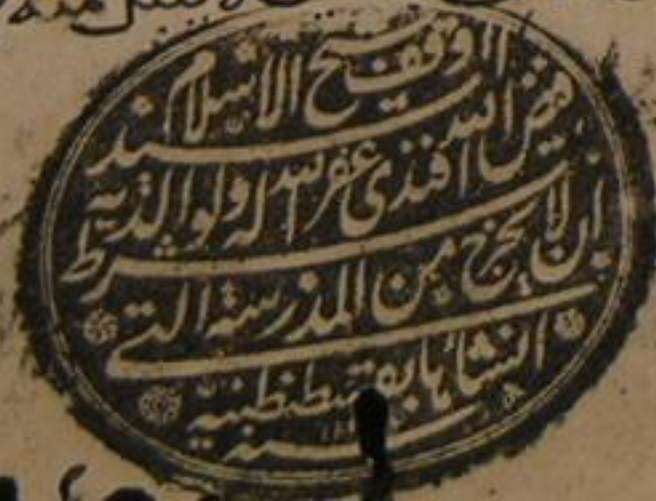 وقف شيخ الاسلام السيد
فيض الله افندى غفر الله له ولوالديه بشرط
ان لا يخرج من المدرسة التي
انشاها بقسطنطينية
سنة